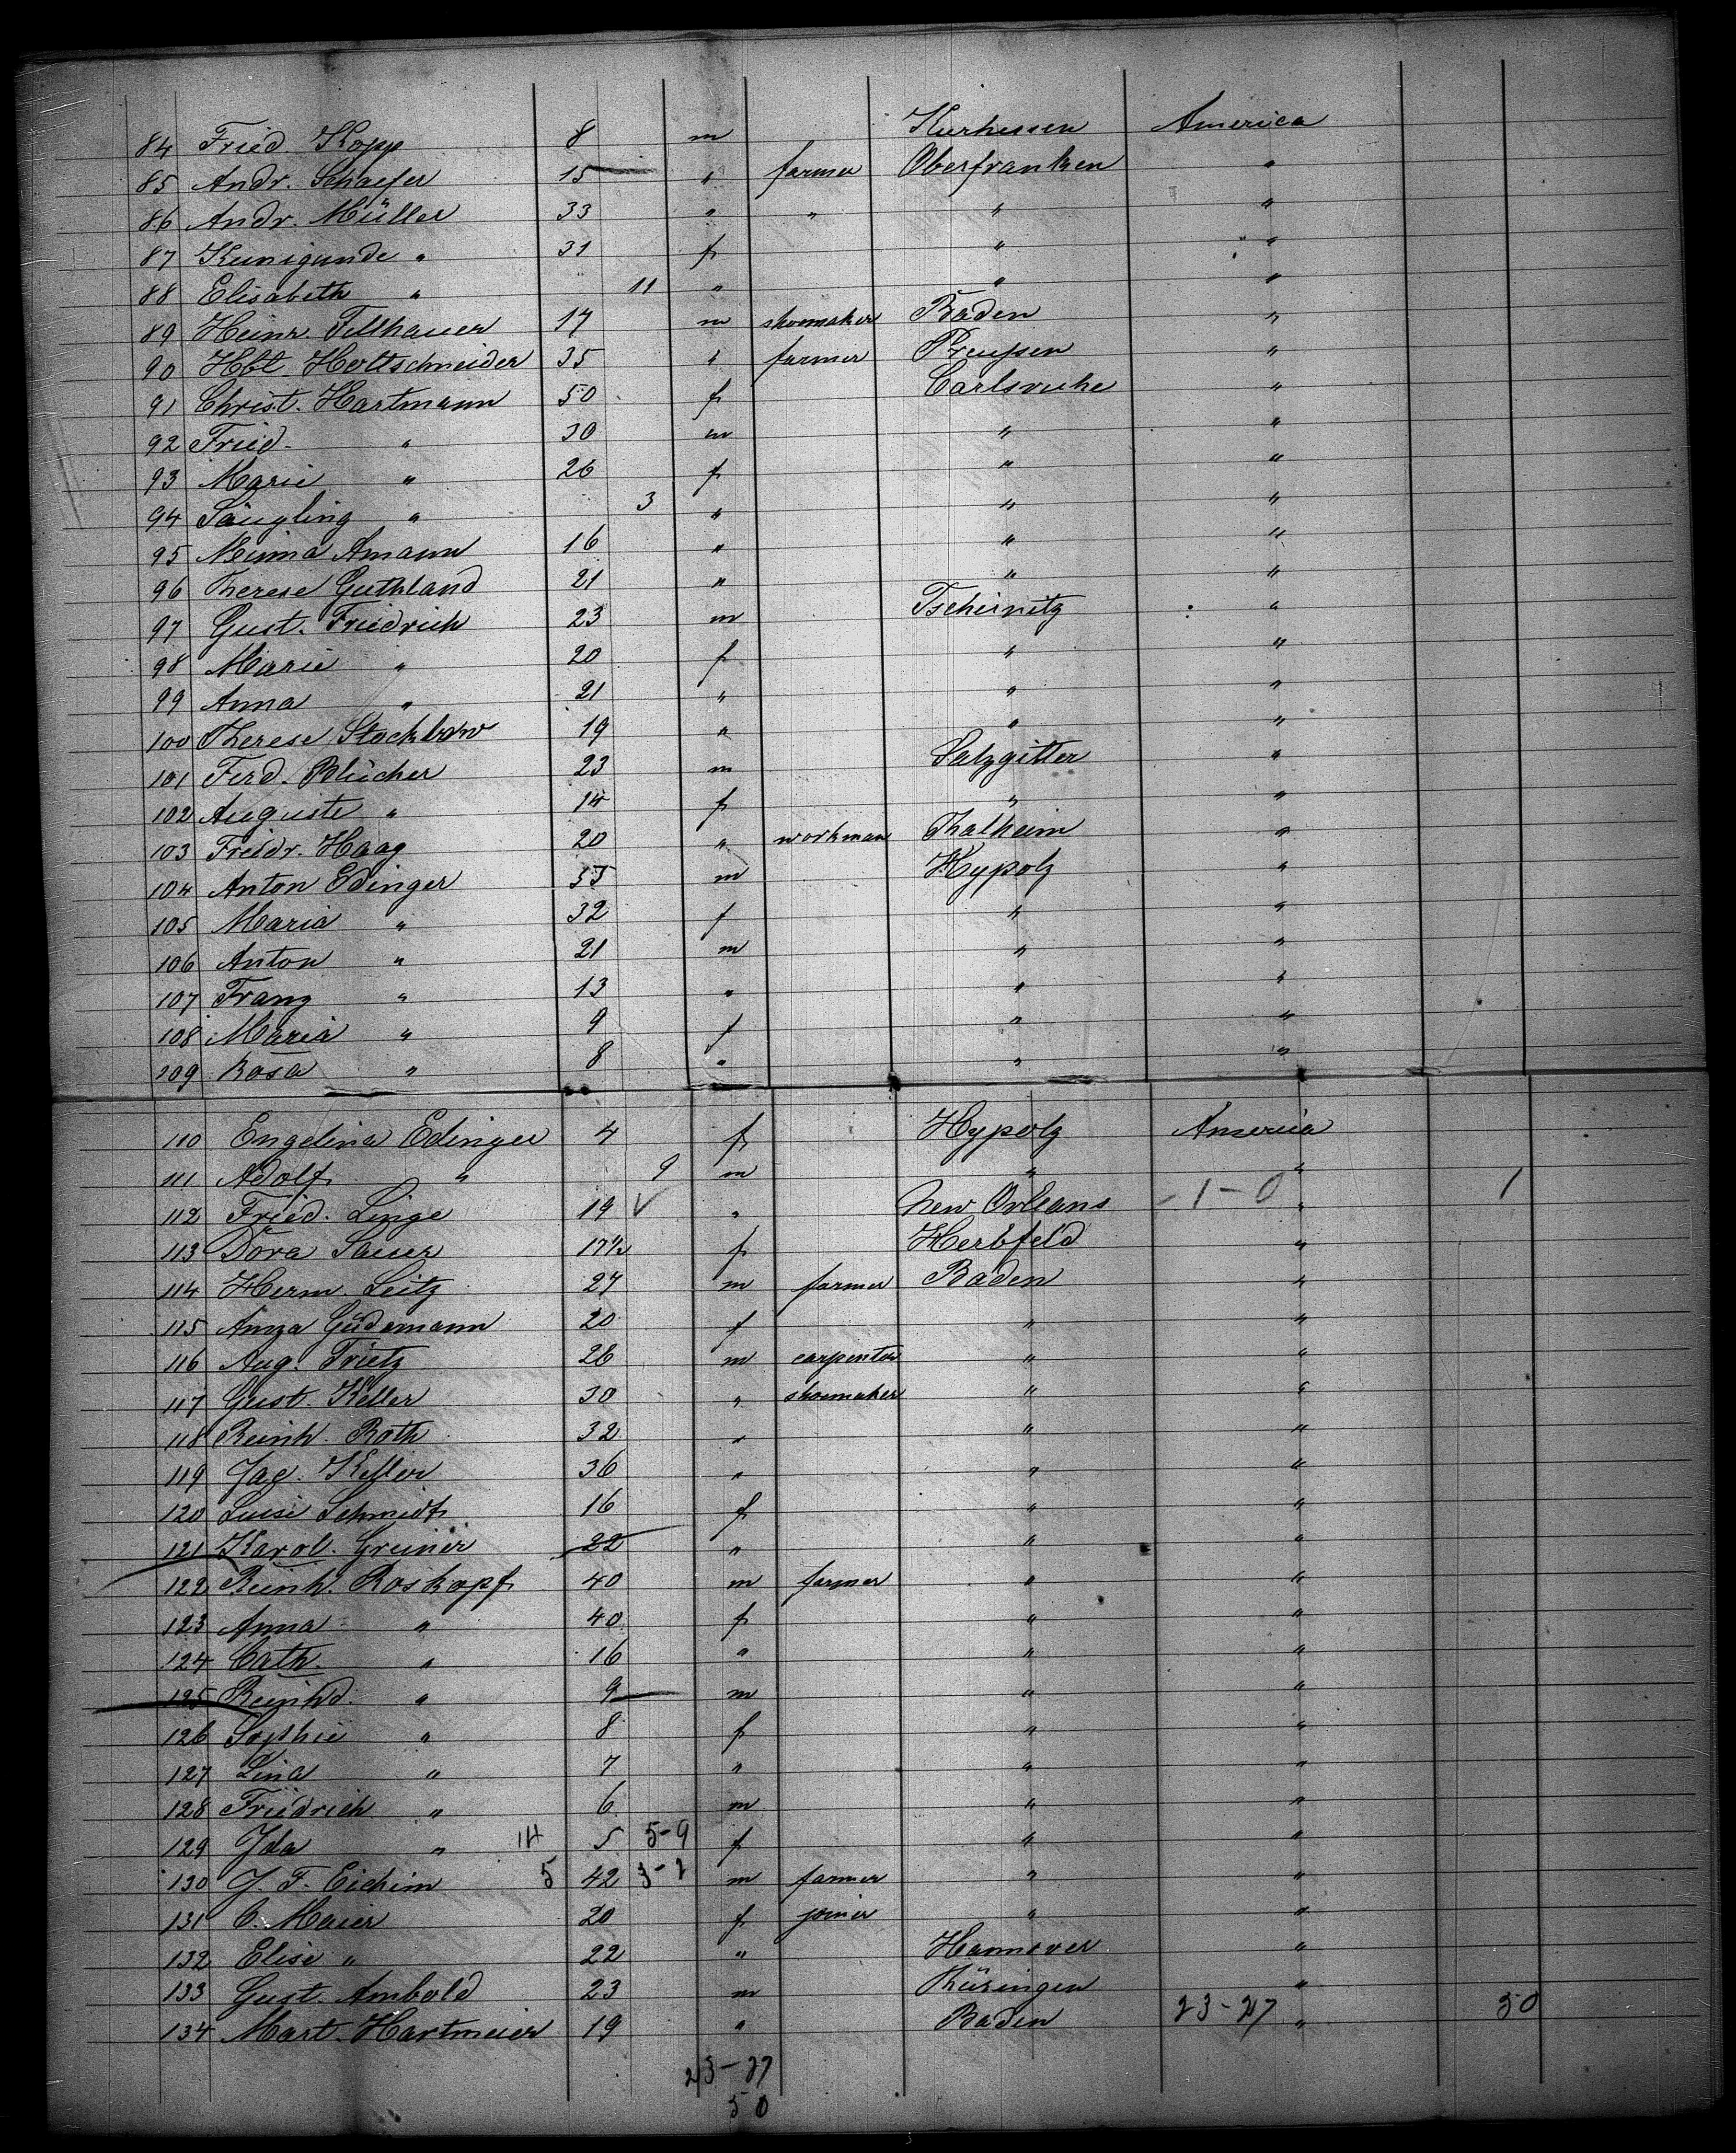 84 Fried. Kopp 8 m Kurhessen America
85 Andr. Schaefer 15 " farmer Oberfranken "
86 Andr. Müller 33 " " " "
87 Kunigunde " 31 f " "
88 Elisabeth " 11 " " "
89 Heinr. Fellhauer 17 m shoemaker Baden "
90 Hbt Holtschneider 35 " farmer Preußen "
91 Christ. Hartmann 50 f Carlsruhe "
92 Fried. " 30 m " "
93 Marie " 26 f " "
94 Säugling " 3 " " "
95 Minna Amann 16 " " "
96 Therese Guthland 21 " " "
97 Gust. Friedrich 23 m Tscheinitz "
98 Marie " 20 f " "
99 Anna " 21 " " "
100 Therese 19 " " "
101 Ferd. Blücher 23 m Salzgitter "
102 Auguste " 14 f " "
103 Freidr. Haag 20 " workman Thalheim "
104 Anton Edinger 35 m Hypolz "
105 Maria " 32 f " "
106 Anton " 21 m " "
107 Franz " 13 " " "
108 Maria " 9 f " "
109 Rosa " 8 " " "
110 Engelina Edinger 4 f Hypolz America
111 Adolf " 9 m " "
112 Fried. Linge 19 " New Orleans 1-0 " 1
113 Dora Sauer 17½ f Herbfeld "
114 Herm. Leitz 27 m farmer Baden "
115 Anna Güdemann 20 f " "
116 Aug. Trietz 26 m carpenter " "
117 Gust. Keller 30 " shoemaker " "
118 Reinh. Roth 32 " " "
119 Jag. Keller 36 " " "
120 Luise Schmidt 16 f " "
121 Karol. Greiner 22 " " "
122 Reinh. Roskopf 40 m farmer " "
123 Anna " 40 f " "
124 Cath. " 16 " " "
125 Reinhd. " 9 m " "
126 Sophie " 8 f " "
127 Lina " 7 " " "
128 Friedrich " 6 m " "
129 Ida " 14 5 5-9 f " "
130 J. F. Eichim 5 42 3-2 m farmer " "
131 C. Maier 20 f joiner " "
132 Elise " 22 " Hannover "
133 Gust. Ambold 23 m Thüringen "
134 Mart. Hartmeier 19 " Baden 23-27 " 50
23-27
50